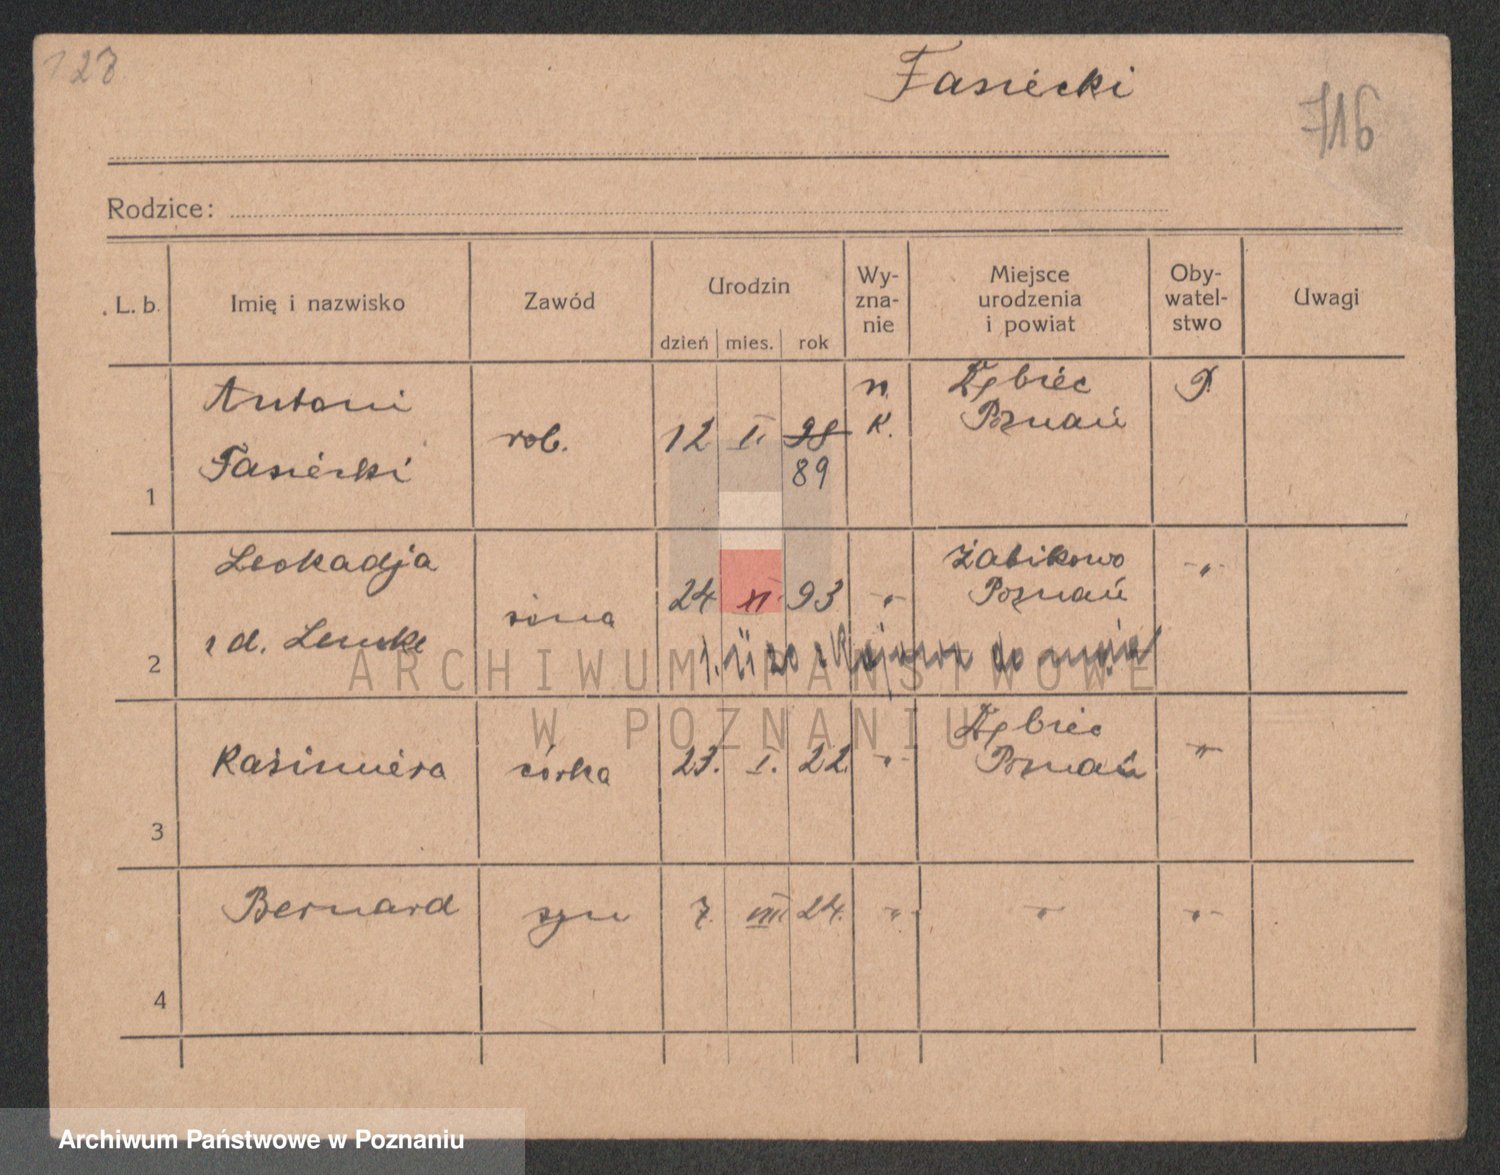 123
Fasiecki
716
Rodzice:
L. b.
Imię i nazwisko
Zawód
Urodzin
dzień mies. rok
Wy-
zna-
nie
Miejsce
urodzenia
i powiat
Oby-
watel-
stwo
Uwagi
1
Antoni
Fasiecki
rob.
12 I. 98
89
K.
Poznań
P.
2
Leokadja
Lemke
żona
24 XI. 93
"
Żabikowo
Poznań
"
3
Kazimiera
córka
23. I. 22.
"
Poznań
"
4
Bernard
syn
7. VIII 24.
"
"
"
ARCHIWUM PAŃSTWOWE
W POZNANIU
Archiwum Państwowe w Poznaniu